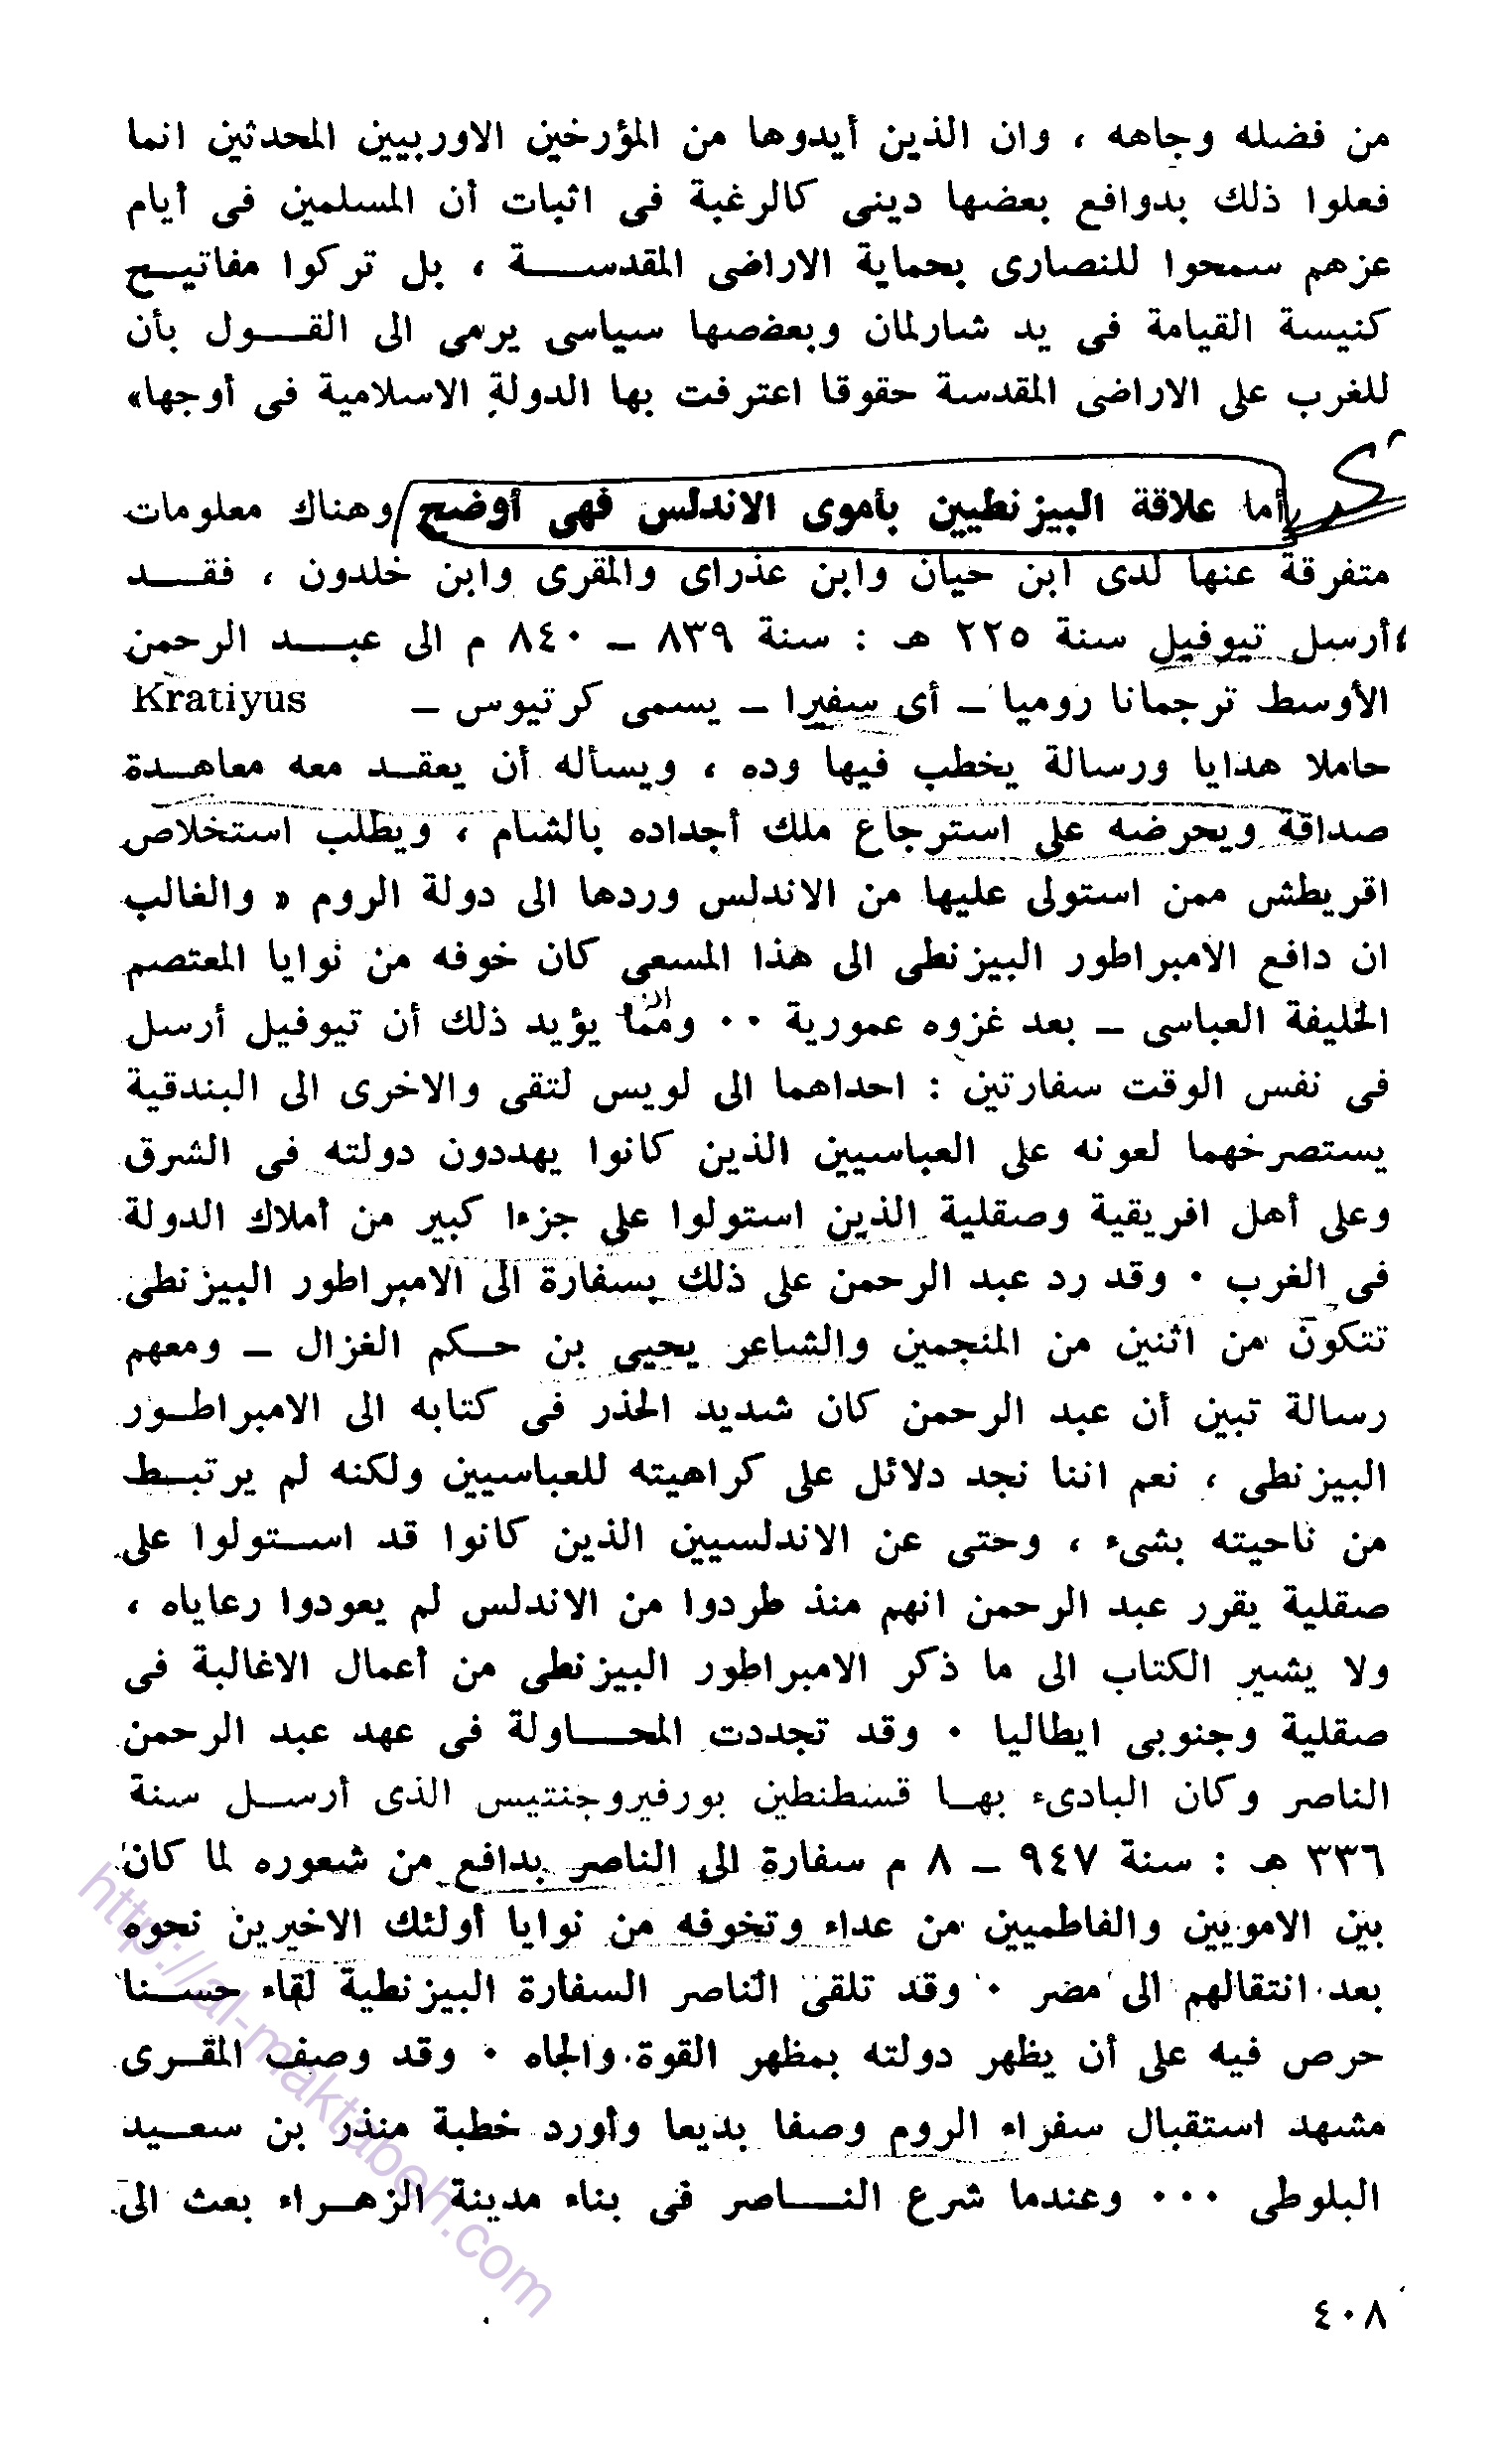 من فضله وجاهه ، وان الذين أيدوها من المؤرخين الاوربيين المحدثين انما
فعلوا ذلك بدوافع بعضها دينى كالرغبة فى اثبات أن المسلمين فى أيام
عزهم سمحوا للنصارى بحماية الاراضى المقدسة ، بل تركوا مفاتيح
كنيسة القيامة فى يد شارلمان وبعضها سياسى يرمى الى القول بأن
للغرب على الاراضى المقدسة حقوقا اعترفت بها الدولة الاسلامية فى أوجها»
أما علاقة البيزنطيين بأموى الاندلس فهى أوضح وهناك معلومات
متفرقة عنها لدى ابن حيان وابن عذراى والمقرى وابن خلدون ، فقد
أرسل تيوفيل سنة ٢٢٥ هـ : سنة ٨٣٩ ــ ٨٤٠ م الى عبد الرحمن
الأوسط ترجمانا روميا ــ أى سفيرا ــ يسمى كرتيوس ــ Kratiyus
حاملا هدايا ورسالة يخطب فيها وده ، ويسأله أن يعقد معه معاهدة
صداقة ويحرضه على استرجاع ملك أجداده بالشام ، ويطلب استخلاص
اقريطش ممن استولى عليها من الاندلس وردها الى دولة الروم » والغالب
ان دافع الامبراطور البيزنطى الى هذا المسعى كان خوفه من نوايا المعتصم
الخليفة العباسى ــ بعد غزوه عمورية ٠٠ ومما يؤيد ذلك أن تيوفيل أرسل
فى نفس الوقت سفارتين : احداهما الى لويس لتقى والاخرى الى البندقية
يستصرخهما لعونه على العباسيين الذين كانوا يهددون دولته فى الشرق
وعلى أهل افريقية وصقلية الذين استولوا على جزءا كبير من أملاك الدولة
فى الغرب ٠ وقد رد عبد الرحمن على ذلك بسفارة الى الامبراطور البيزنطى
تتكون من اثنين من المنجمين والشاعر يحيى بن حكم الغزال ــ ومعهم
رسالة تبين أن عبد الرحمن كان شديد الحذر فى كتابه الى الامبراطور
البيزنطى ، نعم اننا نجد دلائل على كراهيته للعباسيين ولكنه لم يرتبط
من ناحيته بشىء ، وحتى عن الاندلسيين الذين كانوا قد استولوا على
صقلية يقرر عبد الرحمن انهم منذ طردوا من الاندلس لم يعودوا رعاياه ،
ولا يشير الكتاب الى ما ذكر الامبراطور البيزنطى من أعمال الاغالبة فى
صقلية وجنوبى ايطاليا ٠ وقد تجددت المحاولة فى عهد عبد الرحمن
الناصر وكان البادىء بها قسطنطين بورفيروجنتيس الذى أرسل سنة
٣٣٦ هـ : سنة ٩٤٧ ــ ٨ م سفارة الى الناصر بدافع من شعوره لما كان
بين الامويين والفاطميين من عداء وتخوفه من نوايا أولئك الاخيرين نحوه
بعد انتقالهم الى مضر ٠ وقد تلقى الناصر السفارة البيزنطية لقاء حسنا
حرص فيه على أن يظهر دولته بمظهر القوة والجاه ٠ وقد وصف المقرى
مشهد استقبال سفراء الروم وصفا بديعا وأورد خطبة منذر بن سعيد
البلوطى ٠٠٠ وعندما شرع الناصر فى بناء مدينة الزهراء بعث الى
٤٠٨
http://al-maktabeh.com